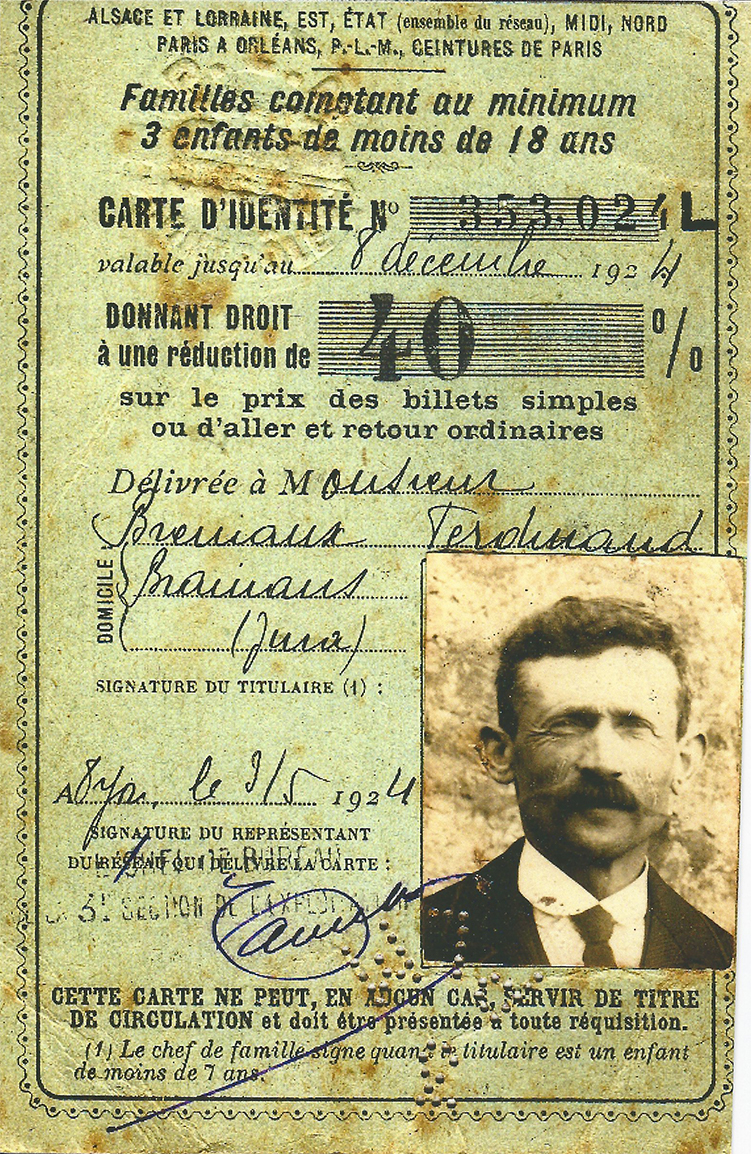 ALSACE ET LORRAINE, EST, ÉTAT (ensemble du réseau), MIDI, NORD
PARIS A ORLÉANS, P.-L.-M., CEINTURES DE PARIS
Familles comptant au minimum
3 enfants de moins de 18 ans
CARTE D'IDENTITÉ No 353,024 L
valable jusqu'au 8 décembre 1924
DONNANT DROIT
à une réduction de 40 0/0
sur le prix des billets simples
ou d'aller et retour ordinaires
Délivrée à Monsieur
Bremaux Ferdinand
DOMICILE : Brainans
(Jura)
SIGNATURE DU TITULAIRE (1) :
A le 9/5 1924
SIGNATURE DU REPRÉSENTANT
DU RÉSEAU QUI DÉLIVRE LA CARTE :
BUREAU
3E SECTION DE
CETTE CARTE NE PEUT, EN AUCUN CAS, SERVIR DE TITRE
DE CIRCULATION et doit être présentée à toute réquisition.
(1) Le chef de famille signe quand le titulaire est un enfant
de moins de 7 ans.